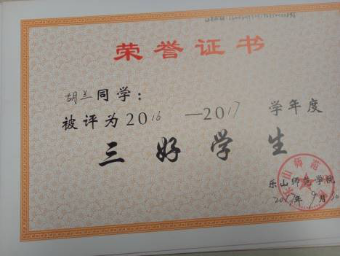 荣誉证书
胡兰同学：
被评为2016—2017学年度
三好学生
乐山师范学院